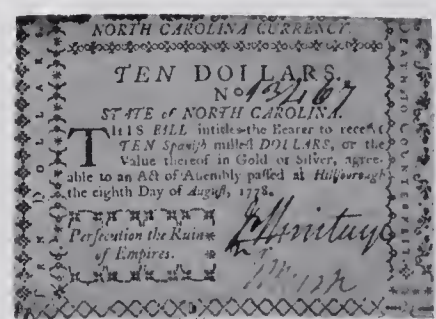 NORTH CAROLINA CURRENCY.
TEN DOLLARS.
No 13467
STATE of NORTH CAROLINA.
THIS BILL intitles the Bearer to receive
TEN Spanish milled DOLLARS, or the
Value thereof in Gold or Silver, agree-
able to an Act of Assembly passed at Hillsborough
the eighth Day of August, 1778.
Persecution the Ruin
of Empires.
TEN DOLLARS
DEATH TO COUNTERFEIT